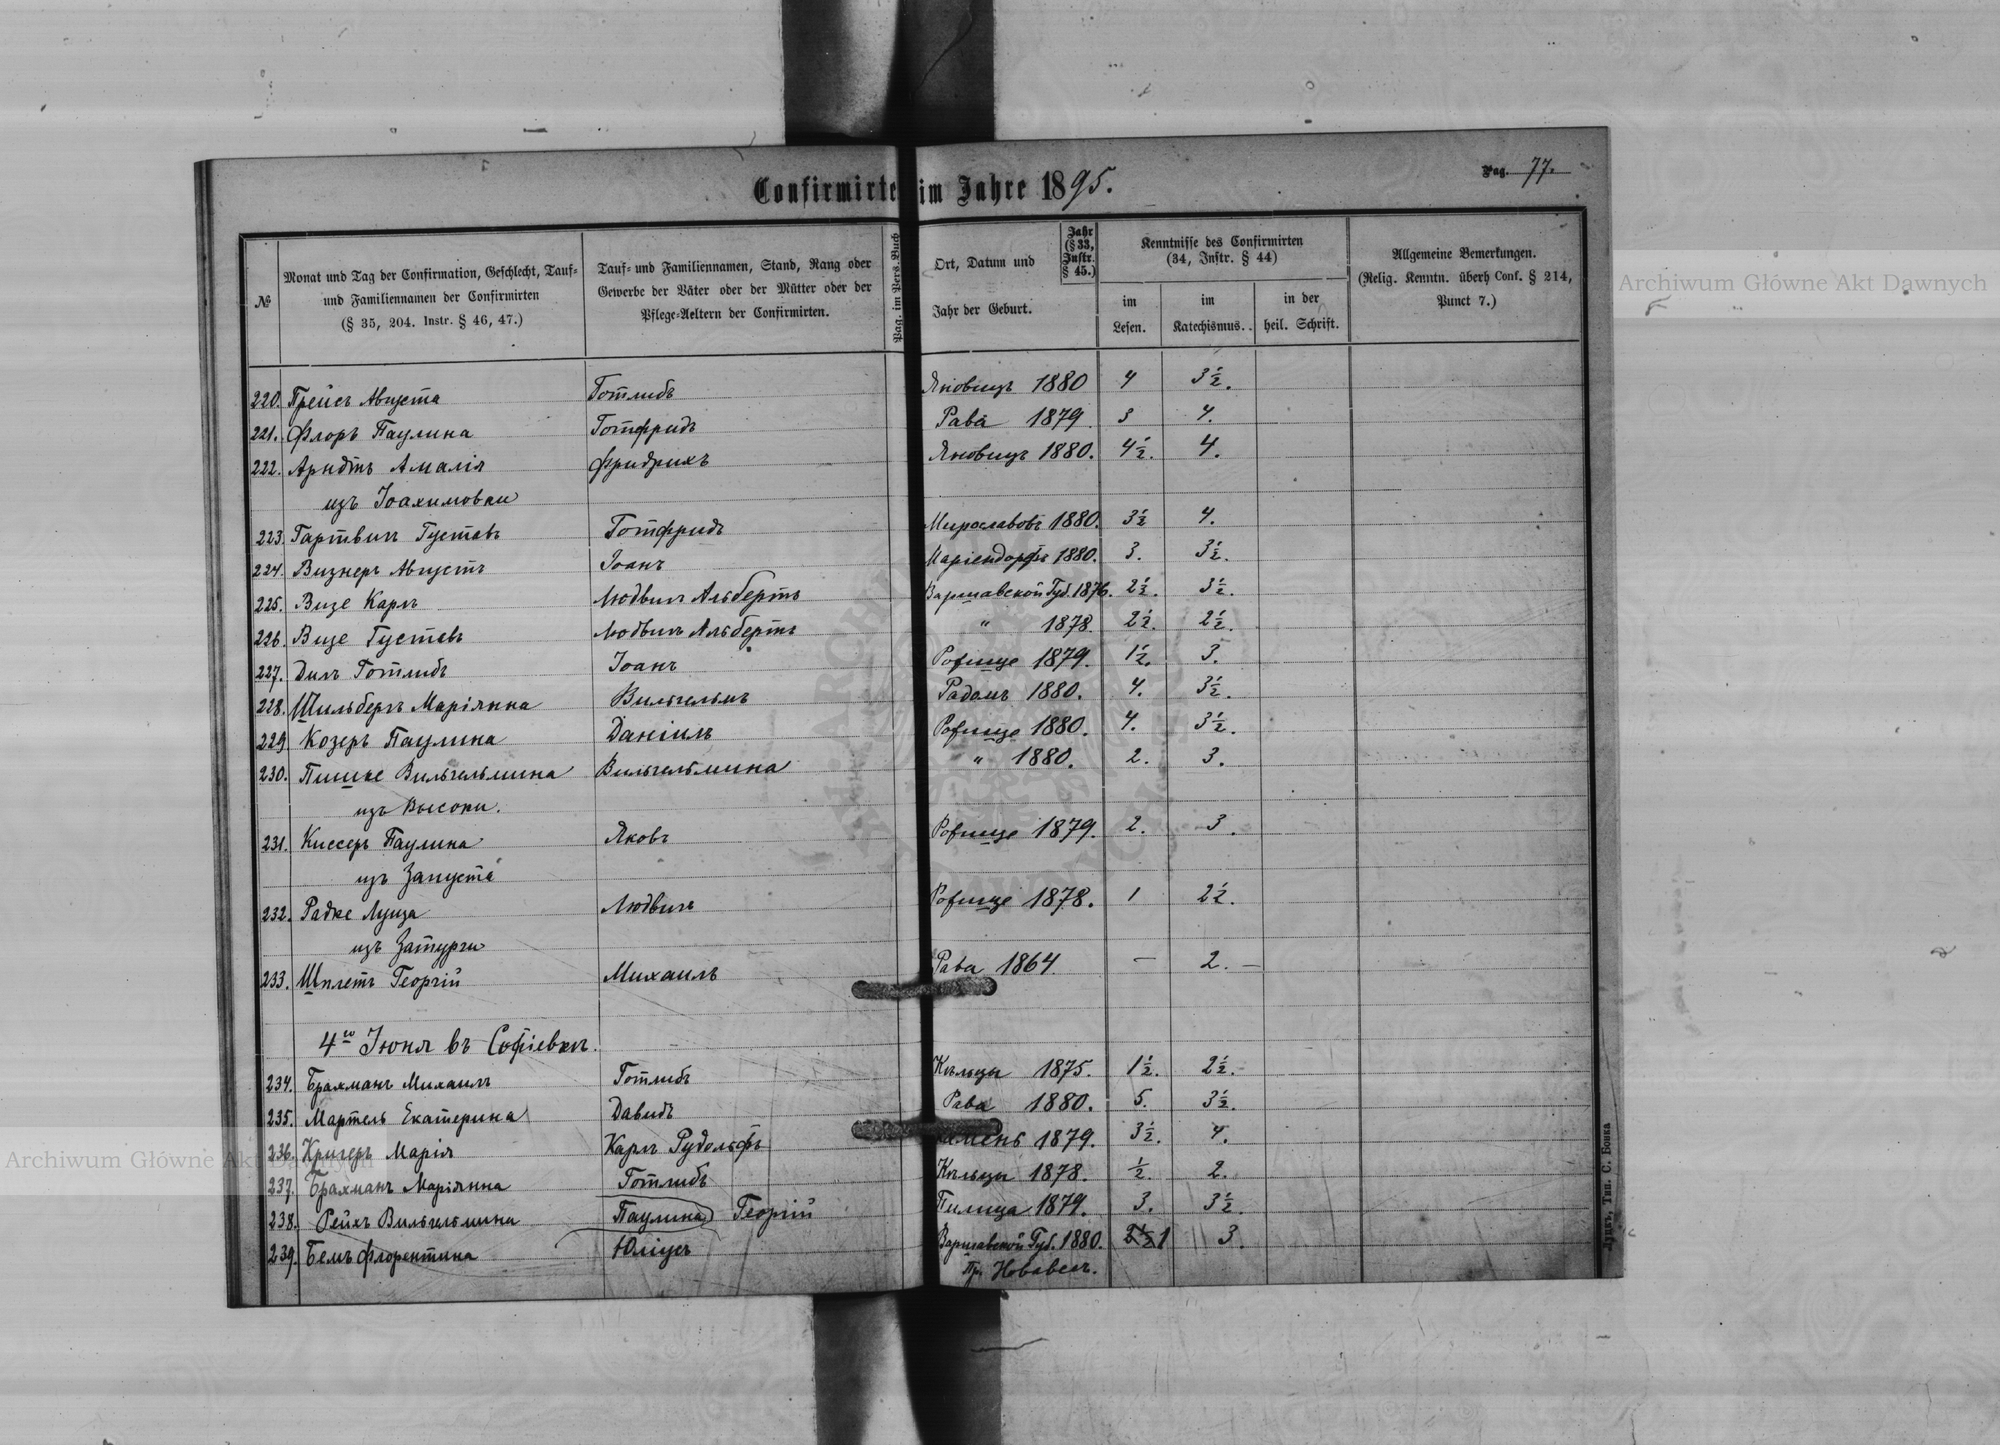 Confirmirte im Jahre 1895.
Pag. 77.
№
Monat und Tag der Confirmation, Geschlecht, Tauf-
und Familiennamen der Confirmirten
(§ 35, 204. Instr. § 46, 47.)
Tauf- und Familiennamen, Stand, Rang oder
Gewerbe der Väter oder der Mütter oder der
Pflege-Aeltern der Confirmirten.
Pag. im Pers. Buch
Ort, Datum und
Jahr der Geburt.
Jahr
(§ 33,
Instr.
§ 45.)
Kenntnisse des Confirmirten
(34, Instr. § 44)
im
Lesen.
im
Katechismus.
in der
heil. Schrift.
Allgemeine Bemerkungen.
(Relig. Kenntn. überh Conf. § 214,
Punct 7.)
220. Прейсъ Августа Готлибъ Яновицъ 1880 4 3½.
221. Флоръ Паулина Готфридъ Рава 1879 3 4.
222. Арндтъ Амалія Фридрихъ Яновицъ 1880. 4½. 4.
изъ Іоахимовки
223. Гартвигъ Густавъ Готфридъ Мирославовъ 1880. 3½ 4.
224. Визнеръ Августъ Іоанъ Маріендорфъ 1880. 3. 3½.
225. Визе Карлъ Людвигъ Альбертъ Варшавской Губ. 1876. 2½. 3½.
226. Визе Густавъ Людвигъ Альбертъ " 1878. 2½. 2½.
227. Дилъ Готлибъ Іоанъ Рожище 1879. 1½. 3.
228. Шильбергъ Маріянна Вильгельмъ Радомъ 1880. 4. 3½.
229. Козеръ Паулина Даніилъ Рожище 1880. 4. 3½.
230. Пишке Вильгельмина Вильгельмина " 1880. 2. 3.
изъ Высоки.
231. Киссеръ Паулина Яковъ Рожище 1879. 2. 3.
изъ Запуста
232. Радке Луиза Людвигъ Рожище 1878. 1 2½.
изъ Затурги
233. Шплетъ Георгій Михаилъ Рава 1864. – 2. –
4го Іюня въ Софіевкѣ.
234. Брахманъ Михаилъ Готлибъ Кѣльцы 1875. 1½. 2½.
235. Мартель Екатерина Давидъ Рава 1880. 5. 3½.
236. Кригеръ Марія Карлъ Рудольфъ 1879. 3½. 4.
237. Брахманъ Маріянна Готлибъ Кѣльцы 1878. ½. 2.
238. Рейхъ Вильгельмина (Паулина) Георгій Пилица 1879. 3. 3½.
239. Бемъ Флорентина Юліусъ Варшавской Губ. 1880. 1 3.
Луцкъ, Тип. С. Бонка
Archiwum Główne Akt Dawnych
Archiwum Główne Akt Dawnych